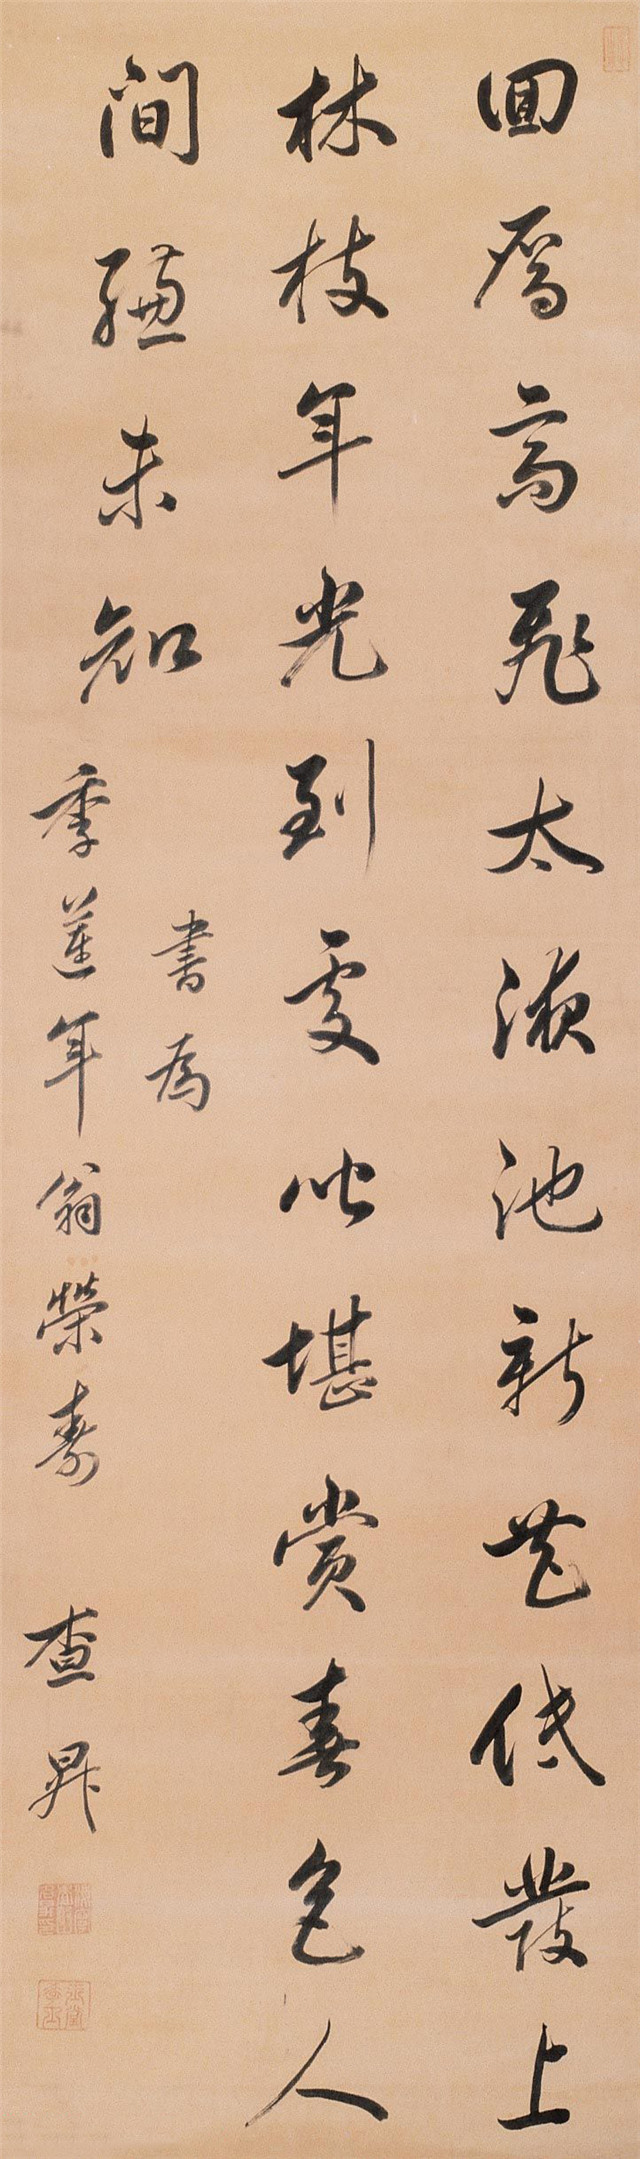 回鴈高飛太液池新花低發上
林枝年光到處皆堪賞春色人
間總未知
書為
季蓮年翁榮壽 查昇